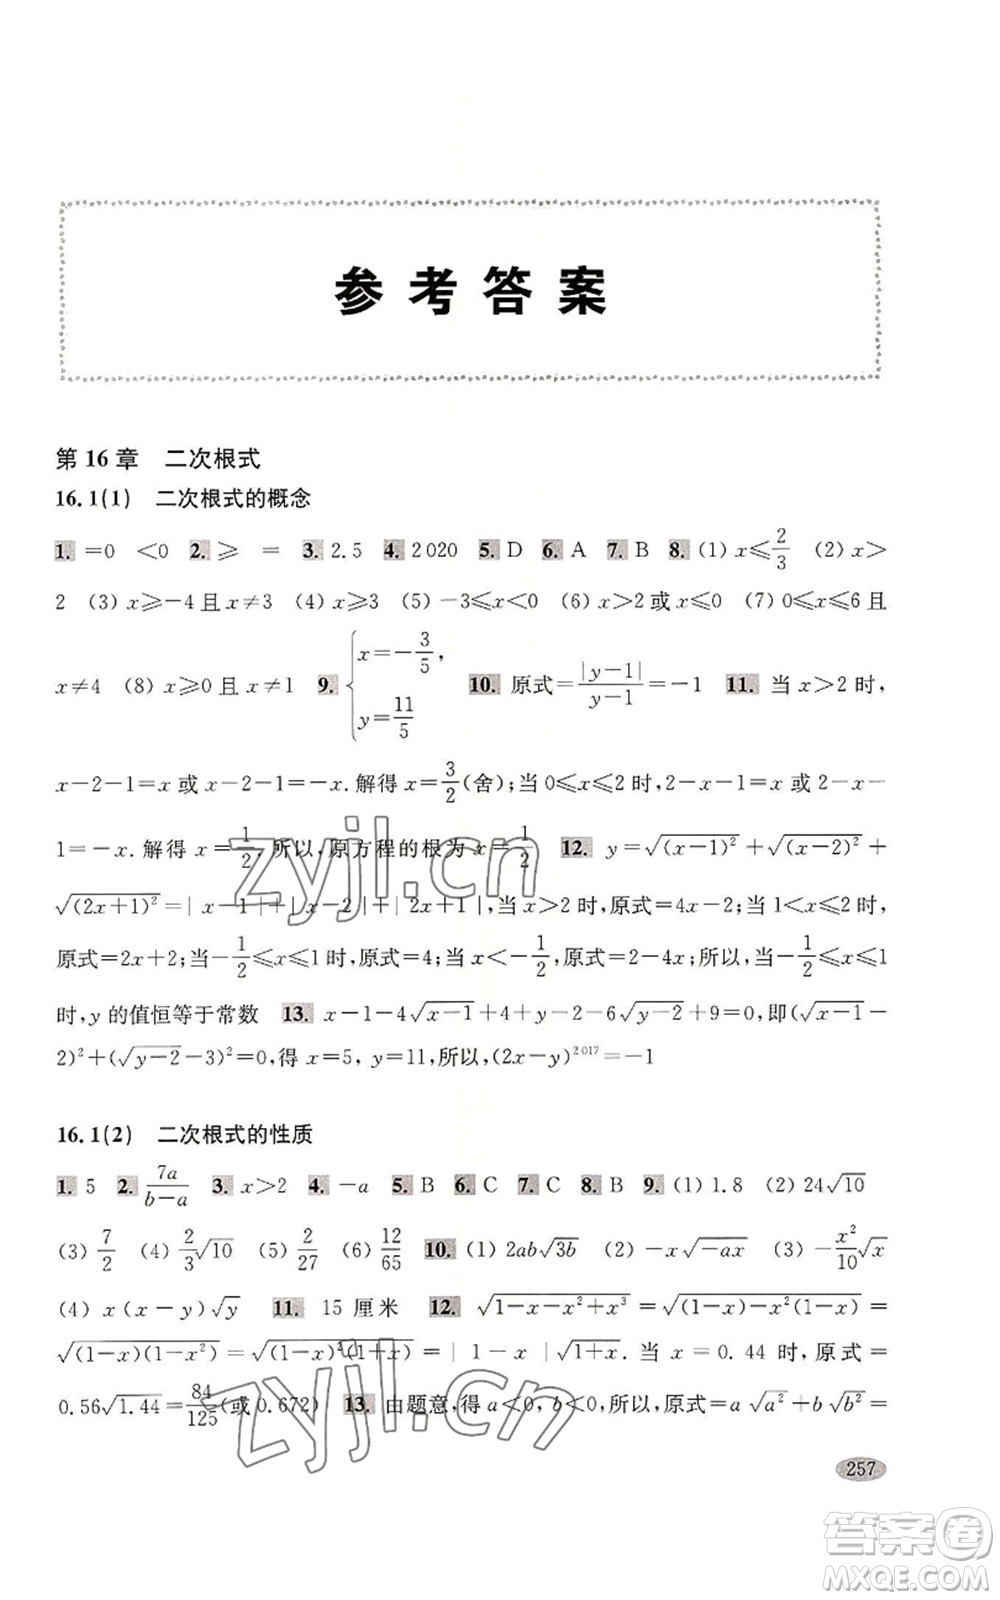 参考答案
第 16 章　二次根式
16.1(1)　二次根式的概念
1. =0　<0　2. ≥　=　3. 2.5　4. 2 020　5. D　6. A　7. B　8. (1) x≤2/3　(2) x>
2　(3) x≥-4 且 x≠3　(4) x≥3　(5) -3≤x<0　(6) x>2 或 x≤0　(7) 0≤x≤6 且
x≠4　(8) x≥0 且 x≠1　9. {x=-3/5, y=11/5　10. 原式=|y-1|/(y-1)=-1　11. 当 x>2 时,
x-2-1=x 或 x-2-1=-x.解得 x=3/2(舍);当 0≤x≤2 时,2-x-1=x 或 2-x-
1=-x.解得 x=1/2,所以,原方程的根为 x=1/2　12. y=√(x-1)²+√(x-2)²+
√(2x+1)²=|x-1|+|x-2|+|2x+1|,当 x>2 时,原式=4x-2;当 1<x≤2 时,
原式=2x+2;当-1/2≤x≤1 时,原式=4;当 x<-1/2,原式=2-4x.所以,当-1/2≤x≤1
时,y 的值恒等于常数　13. x-1-4√(x-1)+4+y-2-6√(y-2)+9=0,即(√(x-1)-
2)²+(√(y-2)-3)²=0,得 x=5, y=11,所以,(2x-y)²⁰¹⁷=-1
16.1(2)　二次根式的性质
1. 5　2. 7a/(b-a)　3. x>2　4. -a　5. B　6. C　7. C　8. B　9. (1) 1.8　(2) 24√10
(3) 7/2　(4) 2/3√10　(5) 2/27　(6) 12/65　10. (1) 2ab√3b　(2) -x√-ax　(3) -x²/10√x
(4) x(x-y)√y　11. 15 厘米　12. √(1-x-x²+x³)=√((1-x)-x²(1-x))=
√((1-x)(1-x²))=√((1-x)²(1+x))=|1-x|√(1+x). 当 x=0.44 时,原式=
0.56√1.44=84/125(或 0.672)　13. 由题意,得 a<0, b<0,所以,原式=a√a²+b√b²=
257
zyjl.cn
zyjl.cn
答案卷
MXQE.COM